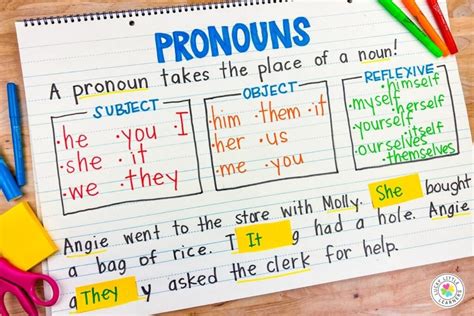 PRONOUNS
A pronoun takes the place of a noun!
SUBJECT
·he ·you ·I
·she ·it
·we ·they
OBJECT
·him ·them ·it
·her ·us
·me ·you
REFLEXIVE
·himself
·myself ·herself
·yourself
·itself
·ourselves
·themselves
Angie went to the store with Molly. She bought
a bag of rice. T It g had a hole. Angie
a They y asked the clerk for help.
LUCKY LITTLE LEARNERS